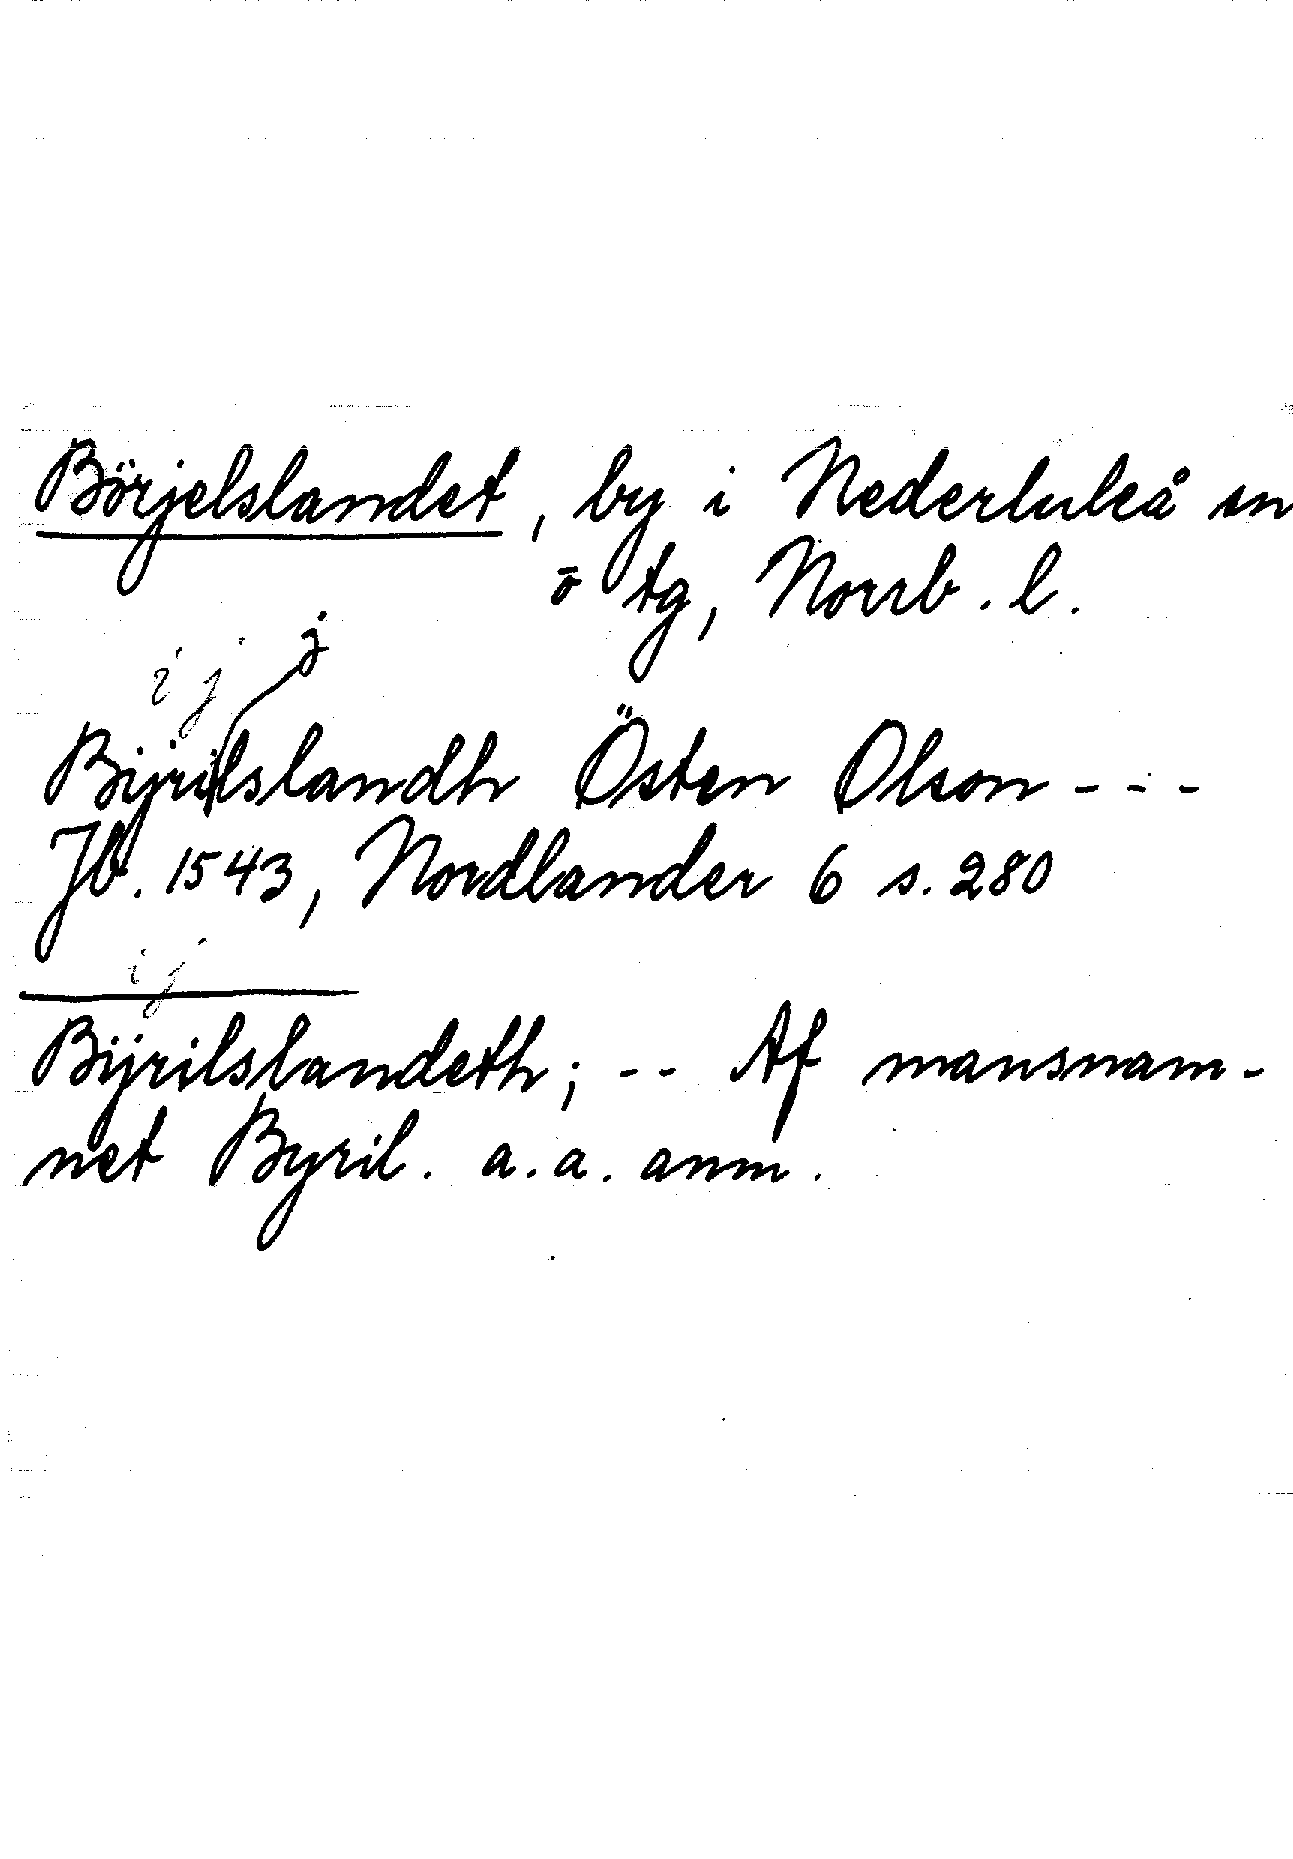 Börjelslandet, by i Nederluleå sn
ö tg, Norrb. l.
i j j
Bijrilslandh Östen Olson - - -
Jb. 1543, Nordlander 6 s. 280
i j
Bijrilslandeth; - - Af mansnam-
net Byril. a.a. anm.